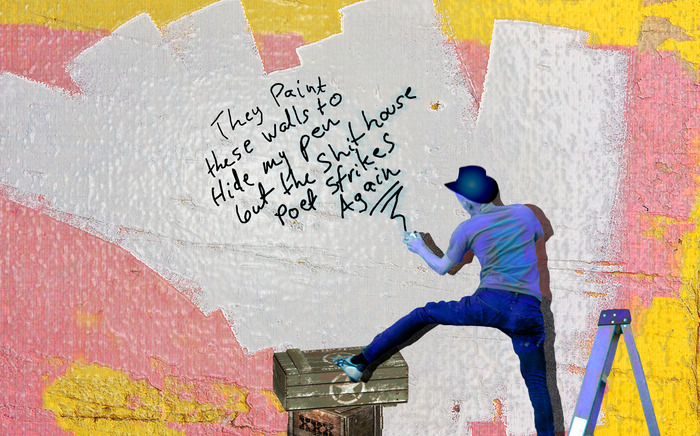 They Paint
these walls to
Hide my Pen
but the Shithouse
poet strikes
Again